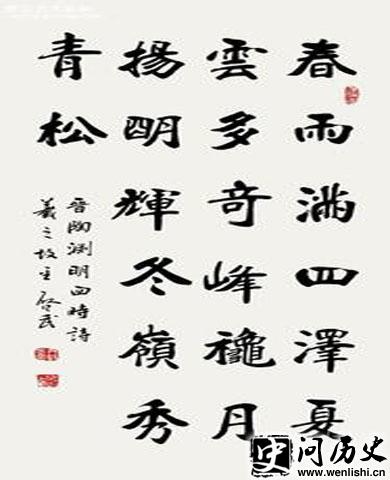 春雨滿四澤夏
雲多奇峰龝月
揚明輝冬嶺秀
青松
晉陶淵明四時詩
羲之故里
问历史
www.wenlishi.cn